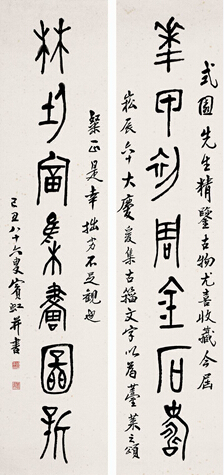 式園先生精鑒古物尤喜收藏今屆
華甲初周金石壽
崧辰六十大慶爰集古籀文字以爲臺萊之頌
粲正是幸拙劣不足觀也
林均富集畫圖新
己丑八十六叟賓虹并書